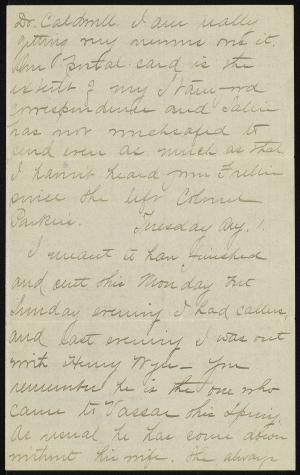 Dr. Caldwell I am really
getting my nerves one it.
One Postal card is the
extent of my Stam-rd
correspondence and Sallie
has not vouchsafed to
send even as much as that
I havn't heard from Nellie
since she left Colonel
Parkers. Tuesday Aug. 1.
I meant to have finished
and sent this Monday but
Sunday evening I had callers,
and last evening I was out
with Henry Wyle- You
remember he is the one who
came to Vassar this Spring.
As usual he has come down
without his wife. He always